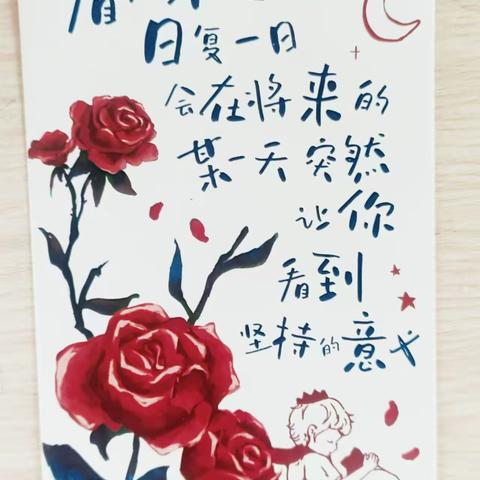 日复一日
会在将来的
某一天突然
让你
看到
坚持的意义